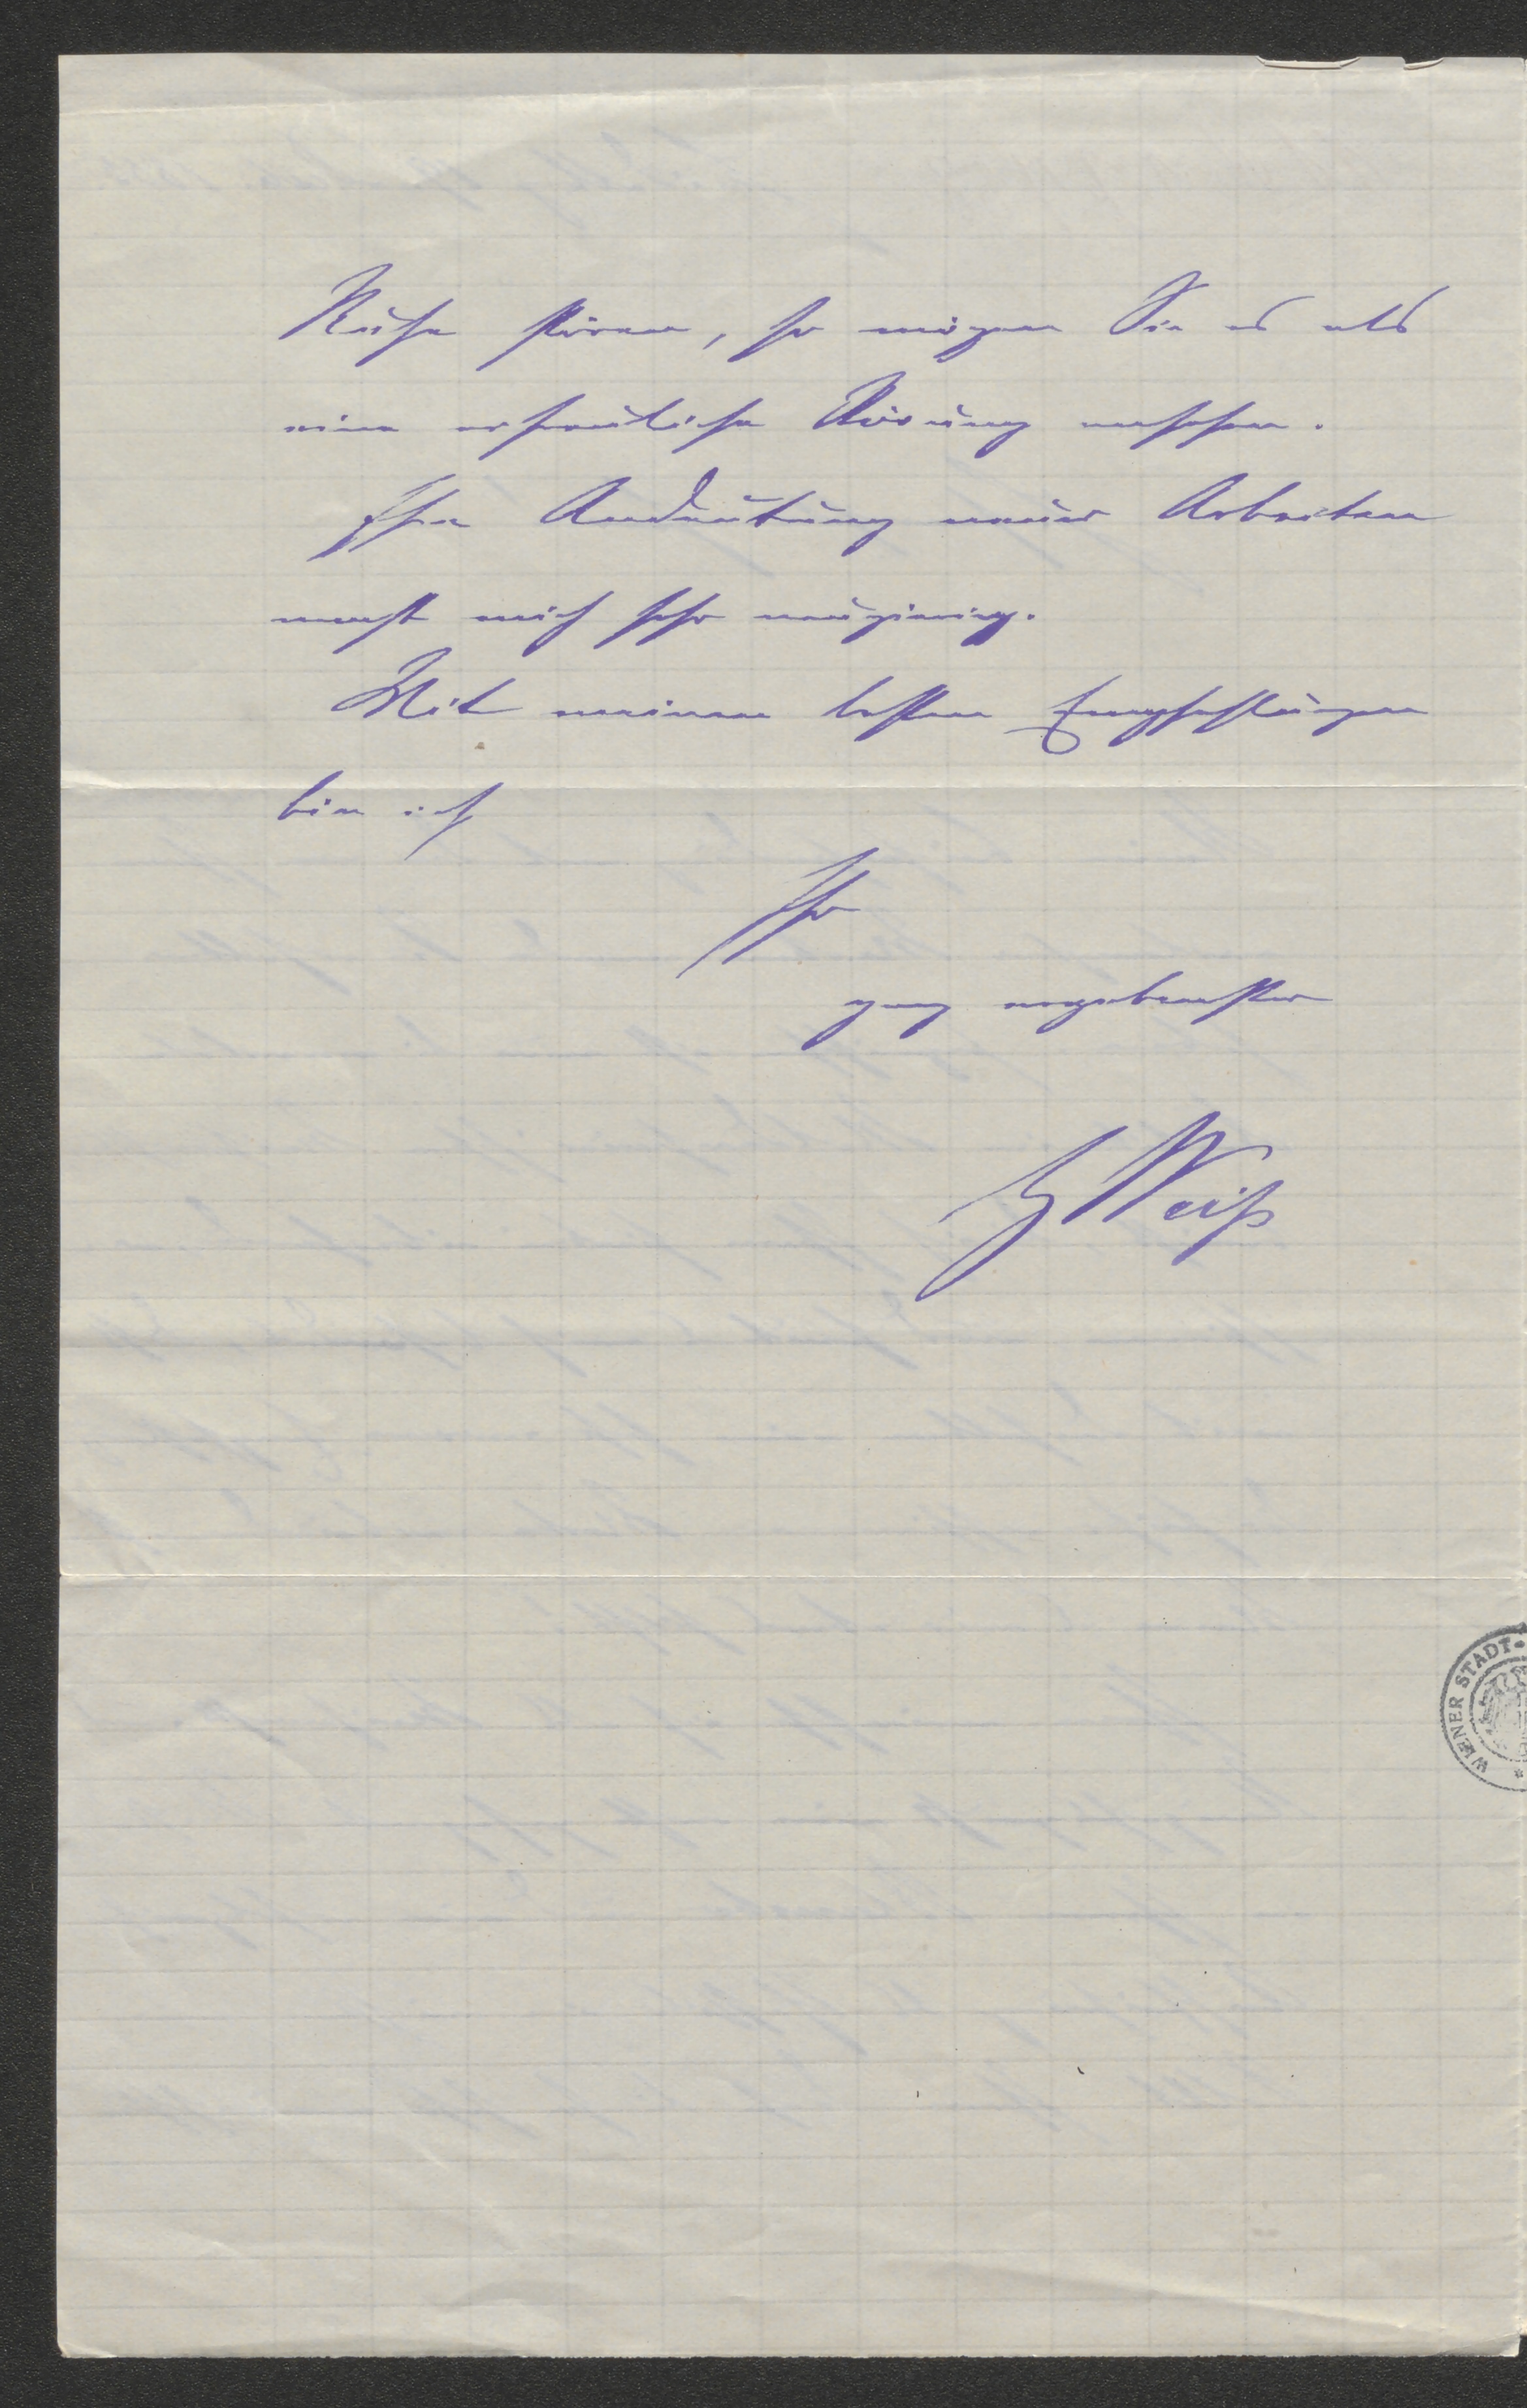 Ruhe stören, so mögen Sie es als
eine erfreuliche Störung ansehen.
Ihre Andeutung neuer Arbeiten
macht mich sehr neugierig.
Mit meinen besten Empfehlungen
bin ich
Ihr
ganz ergebenster
Weiß
WIENER STADT-